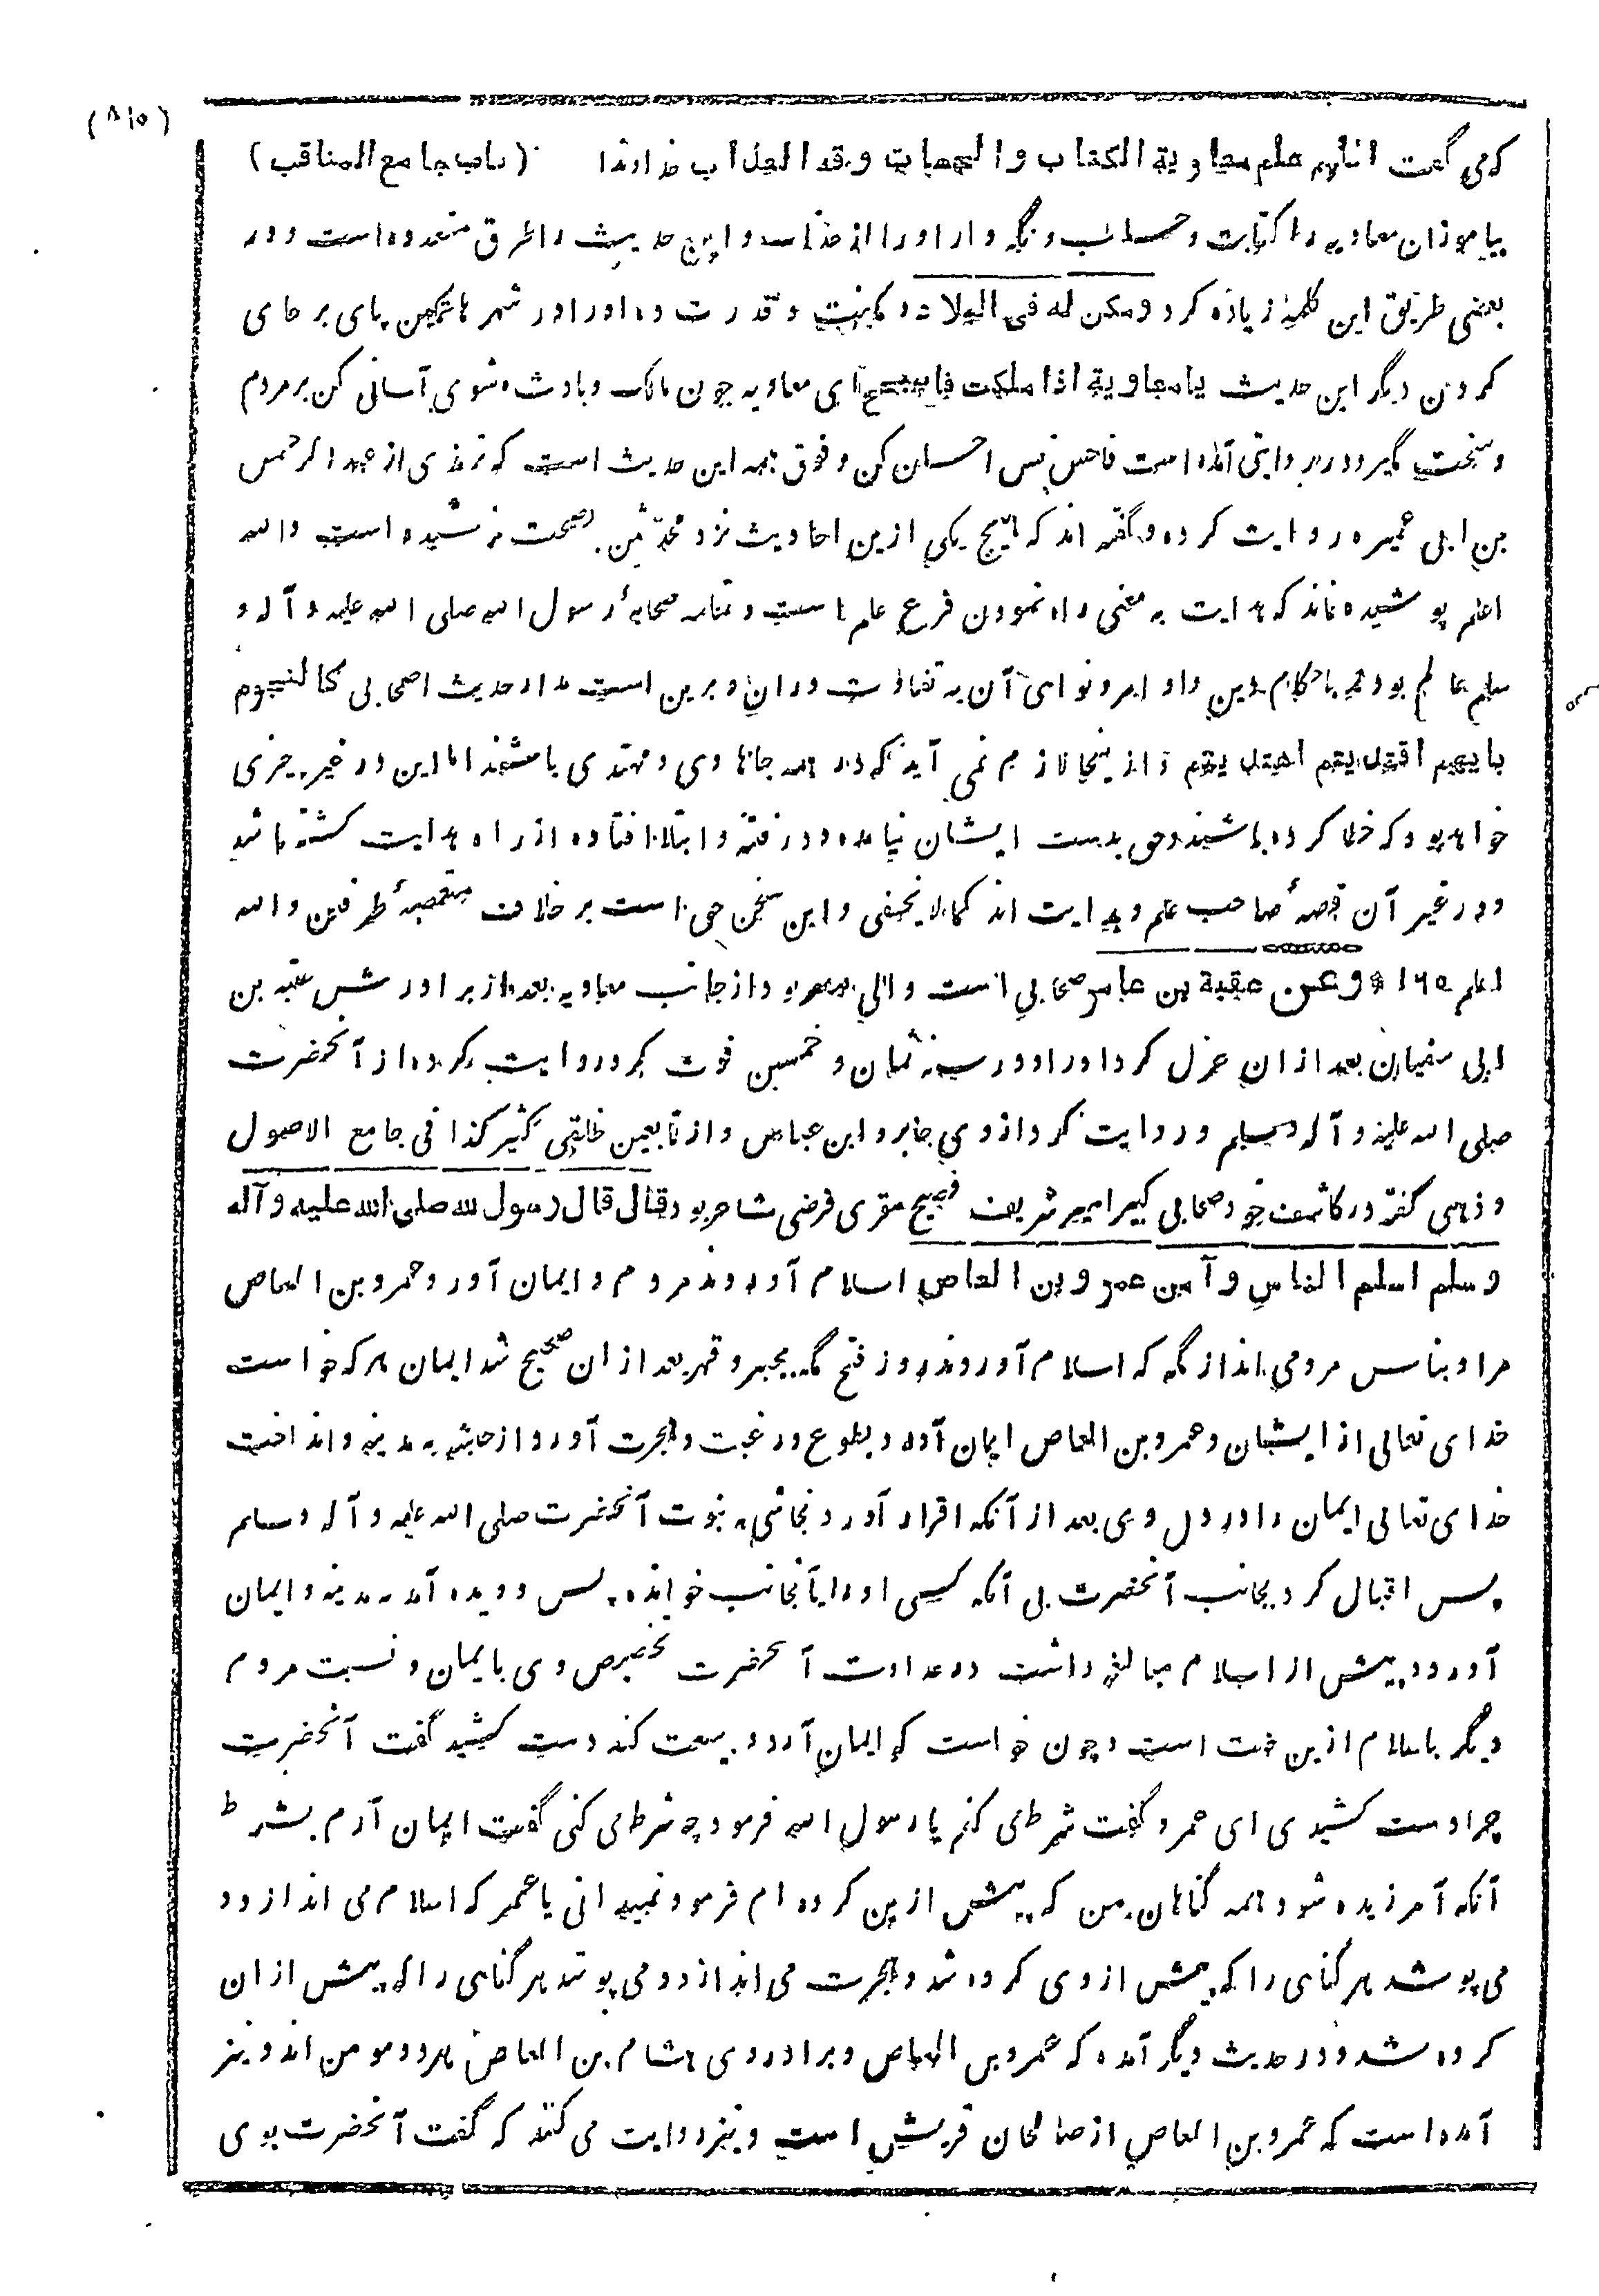 (٨١٥)
که می گفت اللهم علم معاویة الکتاب والحساب وقه العذاب خداوندا (باب جامع المناقب)
بیاموزان معاویه را کتابت و حساب و نگه دار او را از عذاب و این حدیث را طرق متعدده است و در
بعضی طریق این کلمه زیاده کرد و مکن له فی البلاد و تمکین و قدرت ده او را در شهرها تمکین پای بر جای
کردن دیگر این حدیث یا معاویة اذا ملکت فاسجح ای معاویه چون مالک و بادشاه شوی آسانی کن بر مردم
و سخت مگیر و در روایتی آمده است فاحسن پس احسان کن و فوق همه این حدیث است که ترمذی از عبد الرحمن
بن ابی عمیره روایت کرده و گفته اند که هیچ یکی ازین احادیث نزد محدثین بصحت نرسیده است والله
اعلم پوشیده نماند که هدایت به معنی راه نمودن فرع علم است و تمامه صحابهٔ رسول الله صلی الله علیه و آله و
سلم عالم بودند باحکام دین و اوامر و نواهی آن به تفاوت دران و برین است مدار حدیث اصحابی کالنجوم
بایهم اقتدیتم اهتدیتم و از ینجا لازم نمی آید که در همه جا هادی و مهتدی باشند اما این در غیر چیزی
خواهد بود که خطا کرده باشند و حق بدست ایشان نیامده و در فتنه و ابتلا افتاده از راه هدایت گشته باشد
و در غیر آن قصهٔ صاحب علم و هدایت اند کما لا یخفی و این سخن حق است بر خلاف متعصبهٔ طرفین والله
اعلم وعن عقبة بن عامر صحابی است و والی مصر بود از جانب معاویه بعد از برادرش عتبه بن
ابی سفیان بعد ازان عزل کرد او را و در سنه ثمان و خمسین فوت کرد و روایت کرده از آنحضرت
صلی الله علیه و آله وسلم و روایت کرد از وی جابر و ابن عباس و از تابعین خلقی کثیر کذا فی جامع الاصول
و ذهبی گفته در کاشف خود صحابی کبیر امیر شریف فصیح مقری فرضی شاعر بود قال قال رسول الله صلی الله علیه وآله
وسلم اسلم الناس وآمن عمرو بن العاص اسلام آوردند مردم و ایمان آورد عمرو بن العاص
مراد بناس مردمی اند از مکه که اسلام آوردند روز فتح مکه بجبر و قهر بعد ازان صحیح شد ایمان هر که خواست
خدای تعالی از ایشان و عمرو بن العاص ایمان آورد بطوع و رغبت و هجرت آورد از حبشه به مدینه و انداخت
خدای تعالی ایمان را در دل وی بعد از آنکه اقرار آورد نجاشی به نبوت آنحضرت صلی الله علیه و آله وسلم
پس اقبال کرد بجانب آنحضرت بی آنکه کسی او را بآنجانب خوانده پس دویده آمد به مدینه و ایمان
آورد و پیش از اسلام مبالغه داشت در عداوت آنحضرت تخصیص وی بایمان و نسبت مردم
دیگر باسلام ازین جهت است و چون خواست که ایمان آورد و بیعت کند دست کشید گفت آنحضرت
چرا دست کشیدی ای عمرو گفت شرط می کنم یا رسول الله فرمود چه شرط می کنی گفت ایمان آرم بشرط
آنکه آمرزیده شود همه گناهان من که پیش ازین کرده ام فرمود نمیدانی یا عمرو که اسلام می اندازد و
می پوشد هر گناهی را که پیش از وی کرده شد و هجرت می اندازد و می پوشد هر گناهی را که پیش ازان
کرده شد و در حدیث دیگر آمده که عمرو بن العاص و برادر وی هشام بن العاص هر دو مومن اند و نیز
آمده است که عمرو بن العاص از صالحان قریش است و نیز روایت می کنند که گفت آنحضرت بوی